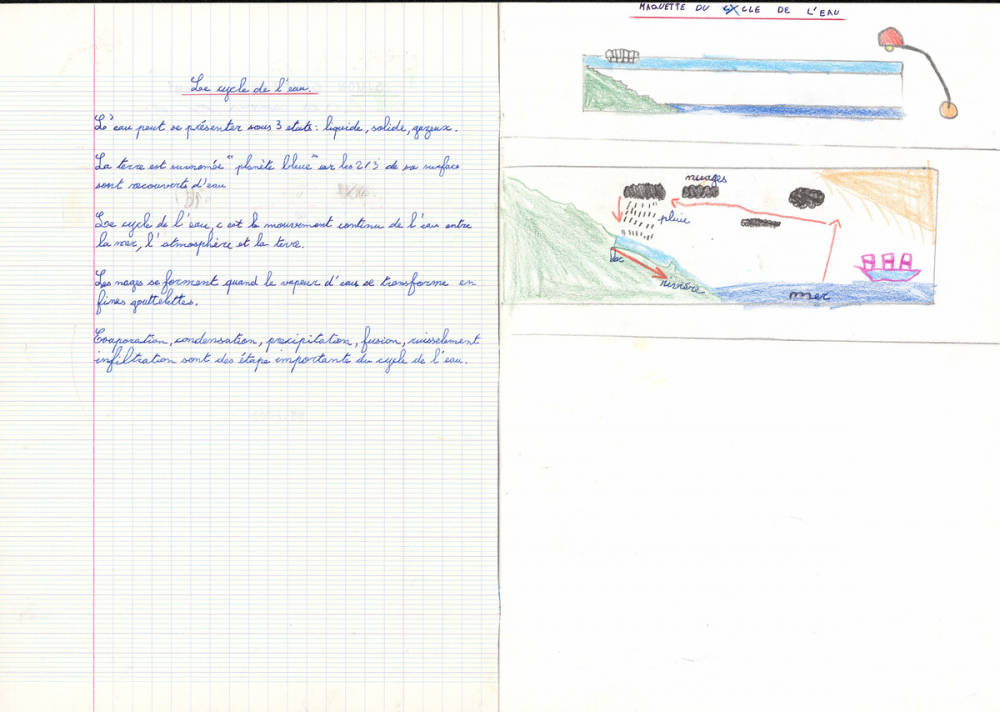 Le cycle de l'eau.
L'eau peut se présenter sous 3 etats : liquide, solide, gazeux.
La terre est surnomée "planète bleue" car les 2/3 de sa surface
sont recouverts d'eau
Le cycle de l'eau, c'est le mouvement continu de l'eau entre
la mer, l'atmosphère et la terre.
Les nages se forment quand le vapeur d'eau se transforme en
fines gouttelettes.
Evaporation, condensation, précipitation, fusion, ruisselement
infiltration sont des étape importants du cycle de l'eau.
MAQUETTE DU CYCLE DE L'EAU
nuages
pluie
lac
rivière
mer